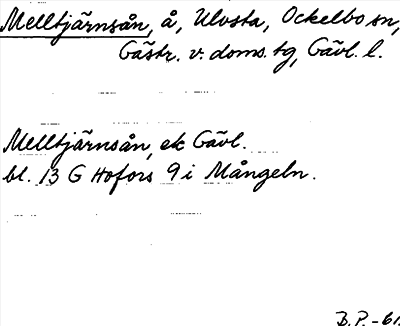 Melltjärnsån, å, Ulvsta, Ockelbo sn,
Gästr. v. doms. tg, Gävl. l.
Melltjärnsån, ek Gävl.
bl. 13 G Hofors 9 i Mångeln.
B.P.-61.